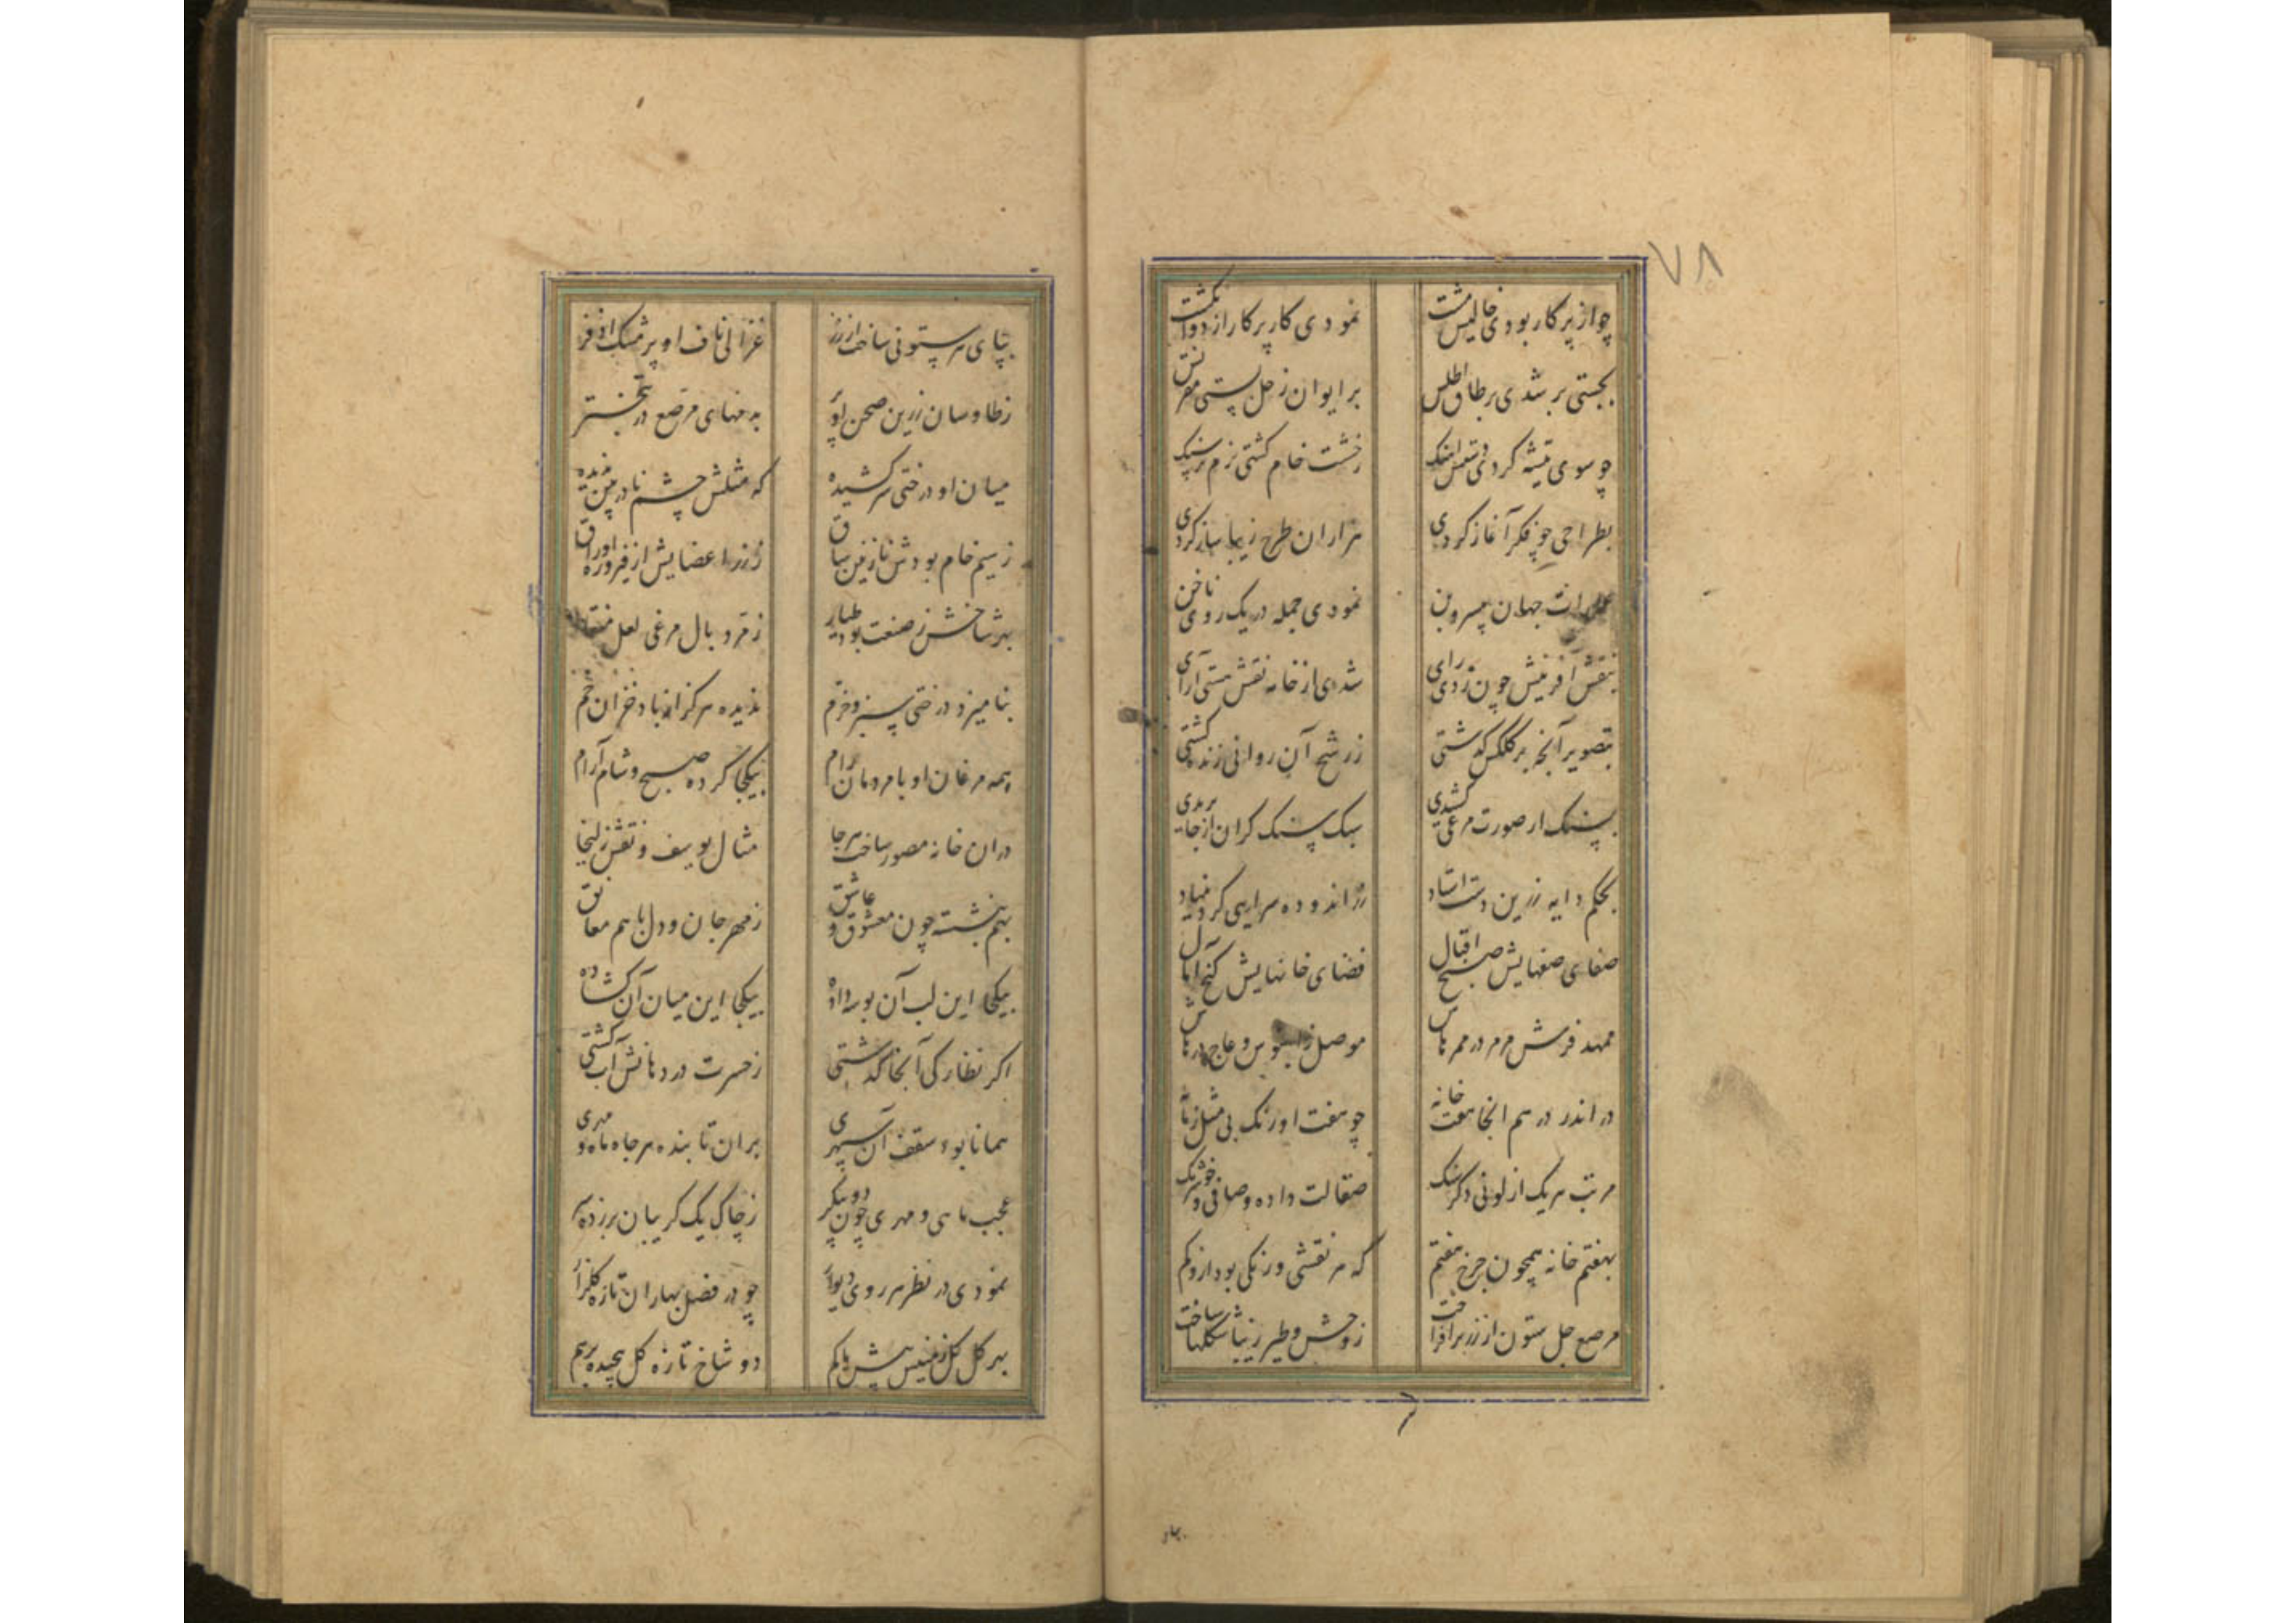 ۷۸
چو از پرکار بودی خالیش مشت نمودی کار پرکار از دو انکشت
بجستی بر شدی بر طاق اطلس بر ایوان زحل بستی مقرنس
چو سوی تیشه کردی دستش اهنک ز خشت خام کشتی نرم‌تر سنک
بطراحی چو فکر آغاز کردی هزاران طرح زیبا ساز کردی
عمارات جهان بی سر و بن نمودی جمله در یک روی ناخن
بنقش آفرینش چون زدی رای شدی از خانه نقش هستی آرای
بتصویر آنچه بر کلکش کذشتی ز رشح آن روانی زنده کشتی
بسنک ار صورت مرغی کشیدی سبک سنک کران از جا پریدی
بحکم دایه زرین دست استاد زر اندوده سرایی کرد بنیاد
صفای صفهایش صبح اقبال فضای خانهایش کنج امال
ممهد فرش مرمر در ممرهاش موصل ز ابنوس و عاج درهاش
در اندر در هم انجا هفت خانه چو هفت اورنک بی مثل زمانه
مرتب هر یک از لونی دکر سنک صقالت داده و صافی و خوشرنک
بهفتم خانه همچون چرخ هفتم که هر نقشی و رنکی بود ازو کم
مرصع چل ستون از زر برافراخت ز وحش و طیر زیبا شکلها ساخت
بپای هر ستونی ساخت از زر غزالی ناف او پر مشک اذفر
ز طاوسان زرین صحن او پر بدمهای مرصع در تبختر
میان او درختی سر کشیده که مثلش چشم نادربین ندیده
ز سیم خام بودش نازنین ساق ز زر اعضایش از فیروزه اوراق
بهر شاخش ز صنعت بود طیار زمرد بال مرغی لعل منقار
بنامیزد درختی سبز و خرم ندیده هرکز از باد خزان خم
همه مرغان او با مردمان رام بیکجا کرده صبح و شام آرام
دران خانه مصور ساخت هر جا مثال یوسف و نقش زلیخا
بهم بنشسته چون معشوق و عاشق ز مهر جان و دل با هم معانق
بیکجا این لب آن بوسه داده بیکجا این میان آن کشاده
اکر نظارکی آنجا کذشتی ز حسرت در دهانش آب کشتی
همانا بود سقف آن سپهری بران تابنده هر جا ماه و مهری
عجب ماهی و مهری چون دو پیکر ز چاک یک کریبان بر زده سر
نمودی در نظر هر روی دیوار چو در فصل بهاران تازه کلزار
بهر کل کل زمینش بیش یا کم دو شاخ تازه کل پیچیده بر هم
بپای